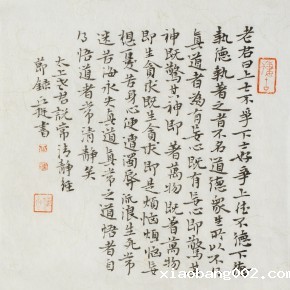 老君曰上士不爭下士好爭上德不德下德
執德執著之者不名道德眾生所以不
真道者為有妄心既有妄心即驚其
神既驚其神即著萬物既著萬物
即生貪求既生貪求即是煩惱煩惱妄
想憂苦身心便遭濁辱流浪生死常
苦海永失真道真常之道悟者自
得悟道者常清靜矣
太上老君說常清靜經
節錄江書
xiaobang002.com